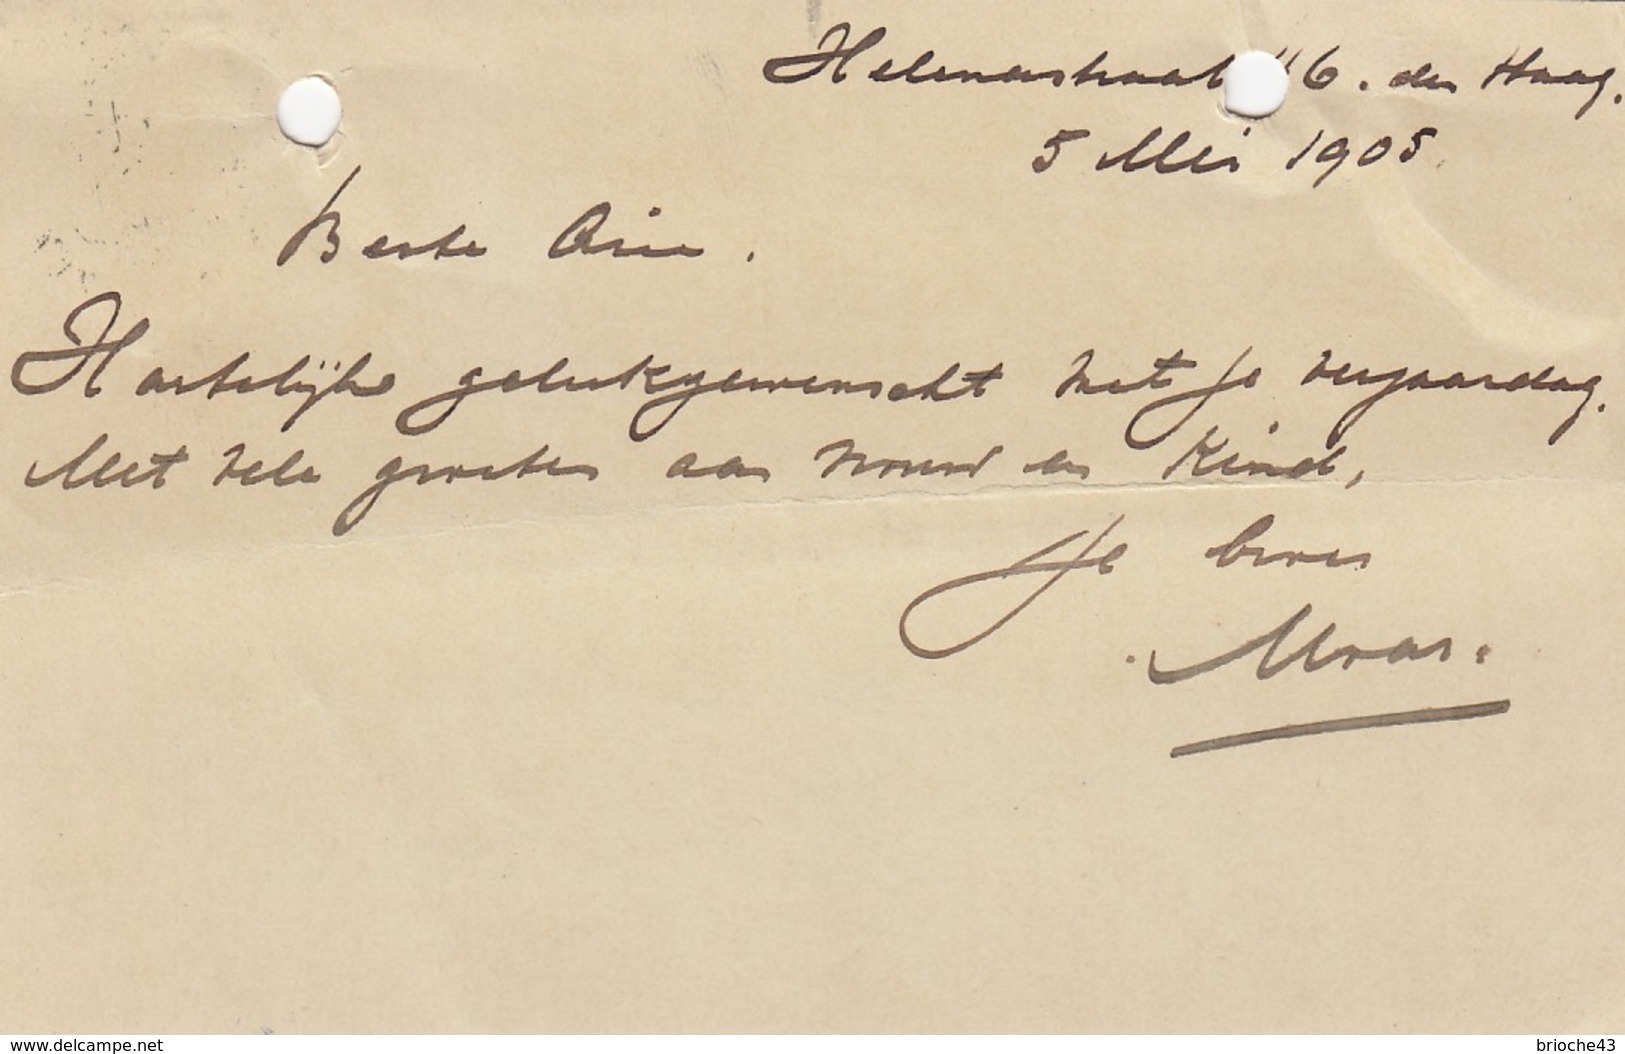 Helenastraat 46. den Haag.
5 Mei 1905
Beste Arie.
Hartelijke gelukgewenscht met je verjaardag.
Met vele groeten aan vrouw en kind,
Je broer
www.delcampe.net
brioche43